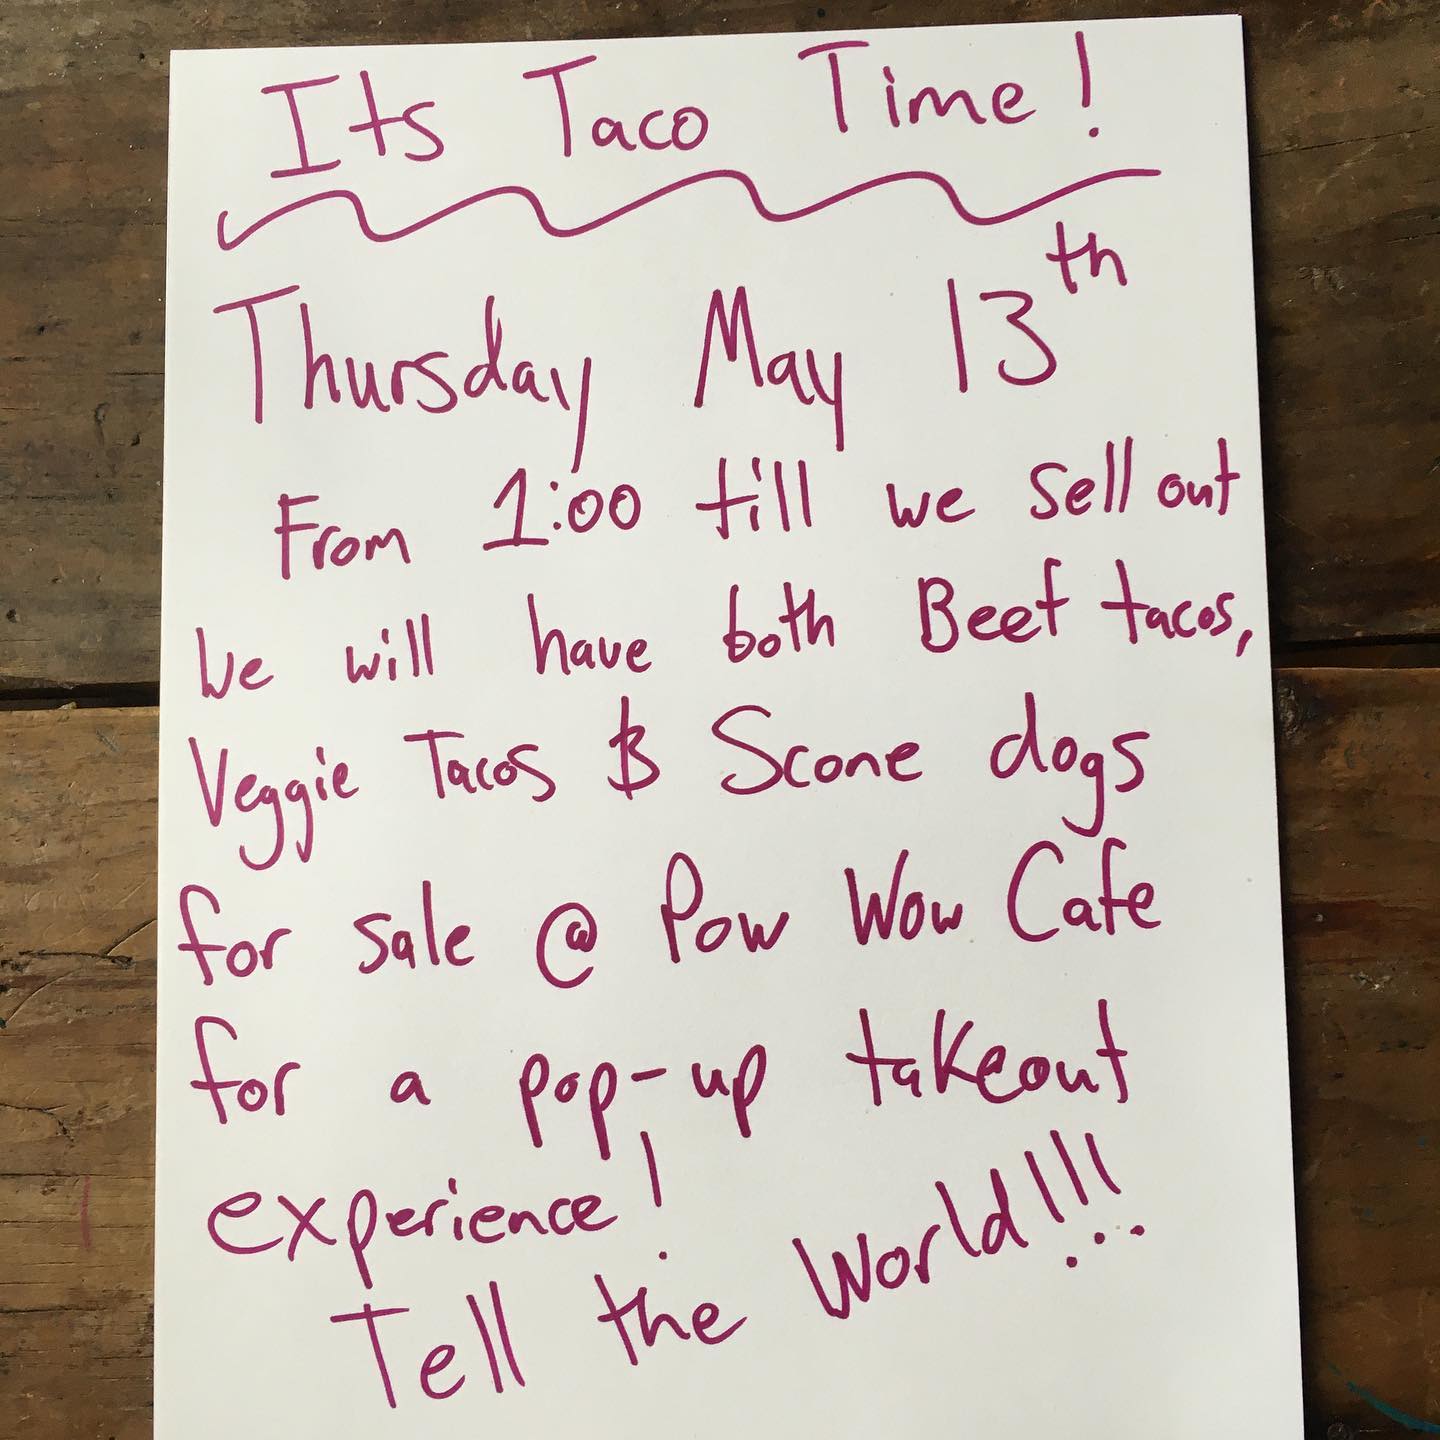 Its Taco Time!
Thursday May 13th
From 1:00 till we sell out
We will have both Beef tacos,
Veggie Tacos & Scone dogs
for sale @ Pow Wow Cafe
for a pop-up takeout
experience!
Tell the World!!!